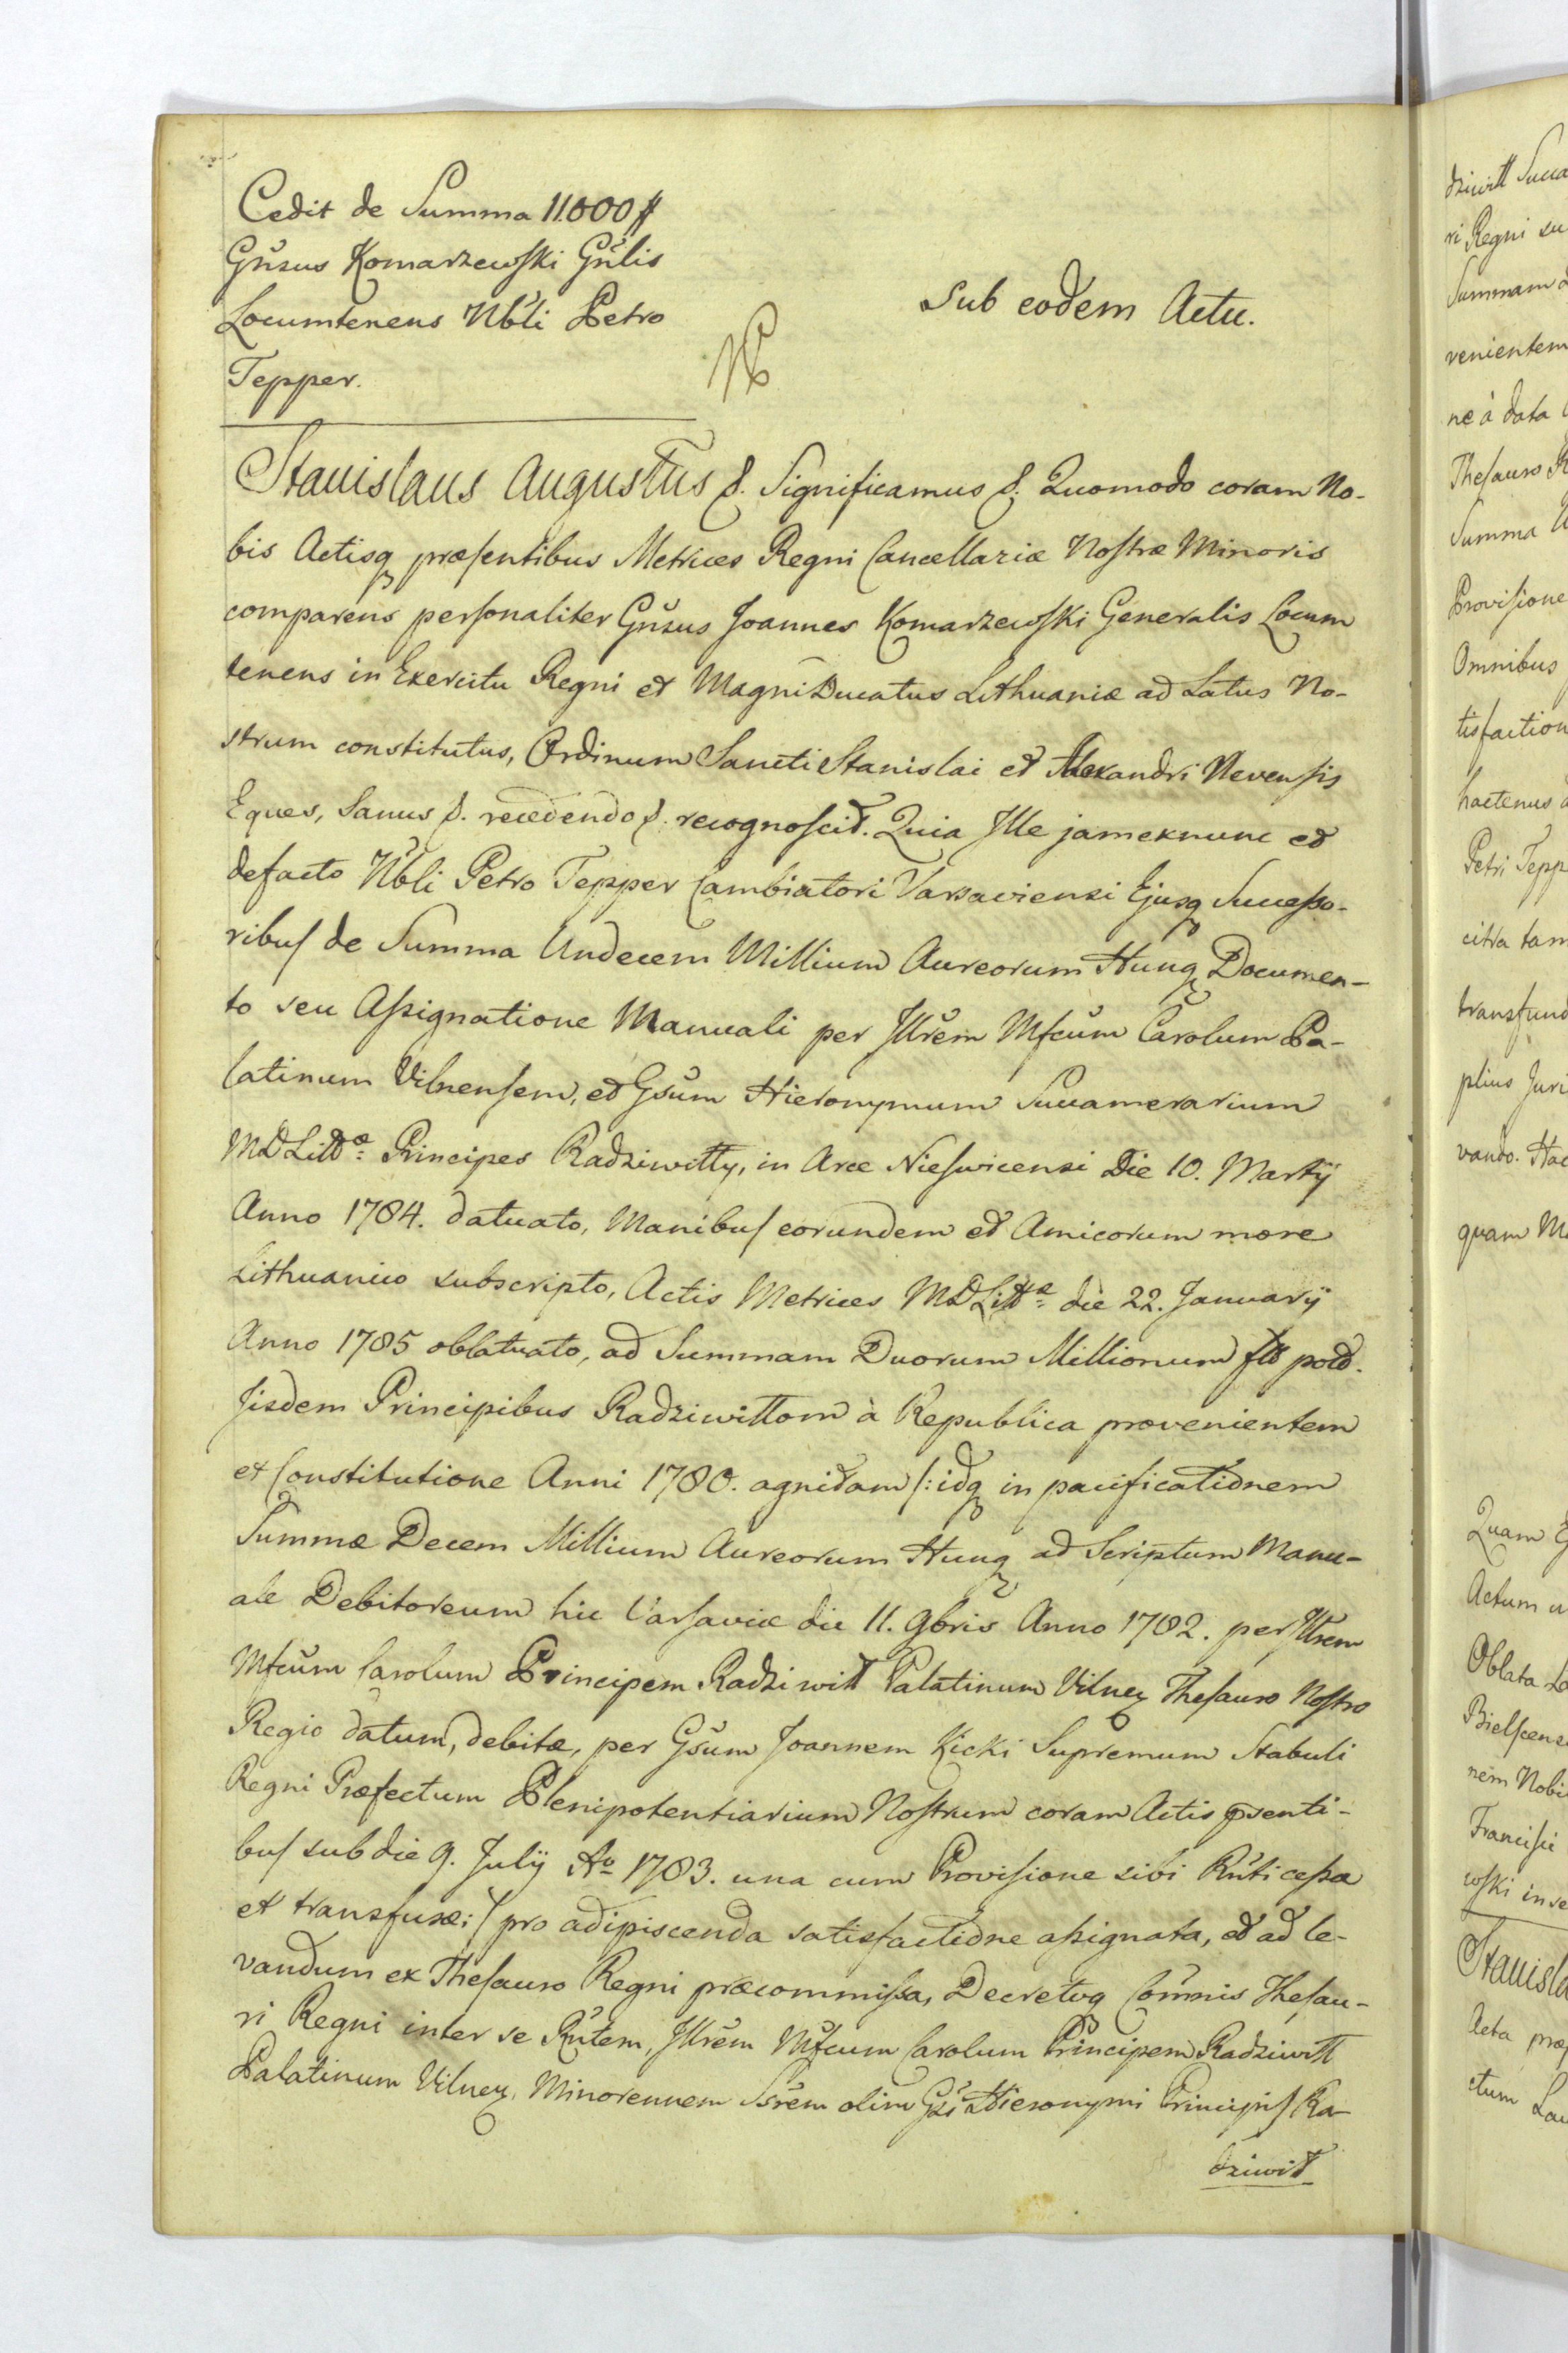 Cedit de Summa 11.000 #
Gnsus Komarzewski Gnlis
Locumtenens Nbli Petro
Tepper.
Sub eodem Actu.
Stanislaus Augustus &. Significamus &. Quomodo coram No-
bis Actisq præsentibus Metrices Regni Cancellariæ Nostræ Minoris
comparens personaliter Gnsus Joannes Komarzewski Generalis Locum
tenens in Exercitu Regni et Magni Ducatus Lithuaniæ ad Latus No-
strum constitutus, Ordinum Sancti Stanislai et Alexandri Nevensis
Eques, Sanus &. recedendo &. recognoscit. Quia Ille jamexnunc et
defacto Nbli Petro Tepper Cambiatori Varsaviensi Ejusq Successo-
ribus de Summa Undecem Millium Aureorum Hung Documen-
to seu Assignatione Manuali per Illrem Mfcum Carolum Pa-
latinum Vilnensem, et Gsum Hieronymum Succamerarium
MDLittæ: Principes Radziwiłły, in Arce Nieswicensi Die 10. Martij
Anno 1784. datuato, Manibus eorundem et Amicorum more
Lithuanico subscripto, Actis Metrices MDLittæ: die 22. Januarij
Anno 1785 oblatuato, ad Summam Duorum Millionum flo pold.
Iisdem Principibus Radziwiłłom à Republica provenientem
et Constitutione Anni 1780. agnitam /: idq in pacificationem
Summæ Decem Millium Aureorum Hung ad Scriptum Manu-
ale Debitoreum hic Varsaviæ die 11. 9bris Anno 1782. per Illrem
Mfcum Carolum Principem Radziwiłł Palatinum Vilnen Thesauro Nostro
Regio datum, debitæ, per Gsum Joannem Kicki Supremum Stabuli
Regni Præfectum Plenipotentiarium Nostrum coram Actis psenti-
bus sub die 9. Julij Ao 1783. una cum Provisione sibi Rnti cessæ
et transfusæ :/ pro adipiscenda satisfactione assignata, et ad le-
vandum ex Thesauro Regni præcommissa, Decretoq Comnis Thesau-
ri Regni inter se Rntem, Illrem Mfcum Carolum Principem Radziwiłł
Palatinum Vilnen, Minorennem Ssrem olim Gsi Hieronymi Principis Ra-
dziwiłł
dziwiłł Succa
ri Regni
Summam
venientem
ne à data
Thesauro
Summa
Provisione
Omnibus
tisfaction
hactenus
Petri Tepp
citra tam
transfund
plius Juri
vando. Hac
quam
Quam
Actum
Oblata
Bielscens
nem Nobi
Francisci
wski
Stanisla
Acta præ
ctum